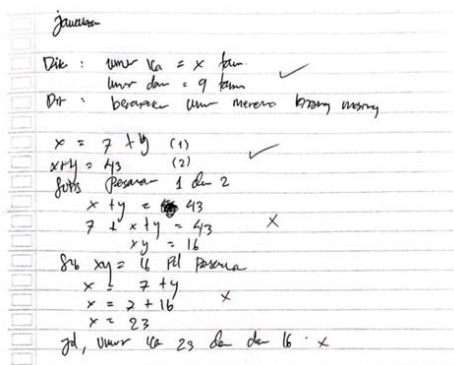 Jawaban
Dik : umur ika = x tahun ✓
umur dan = 9 tahun
Dit : berapakah umur mereka masing masing
x = 7 + y (1)
x+y = 43 (2) ✓
Subs Persamaan 1 dan 2
x + y = 43
7 + x + y = 43 ×
xy = 16
Sub xy = 16 Persamaan
x = 7 + y
x = 7 + 16 ×
x = 23
Jd, umur ika 23 dan dan 16 . ×